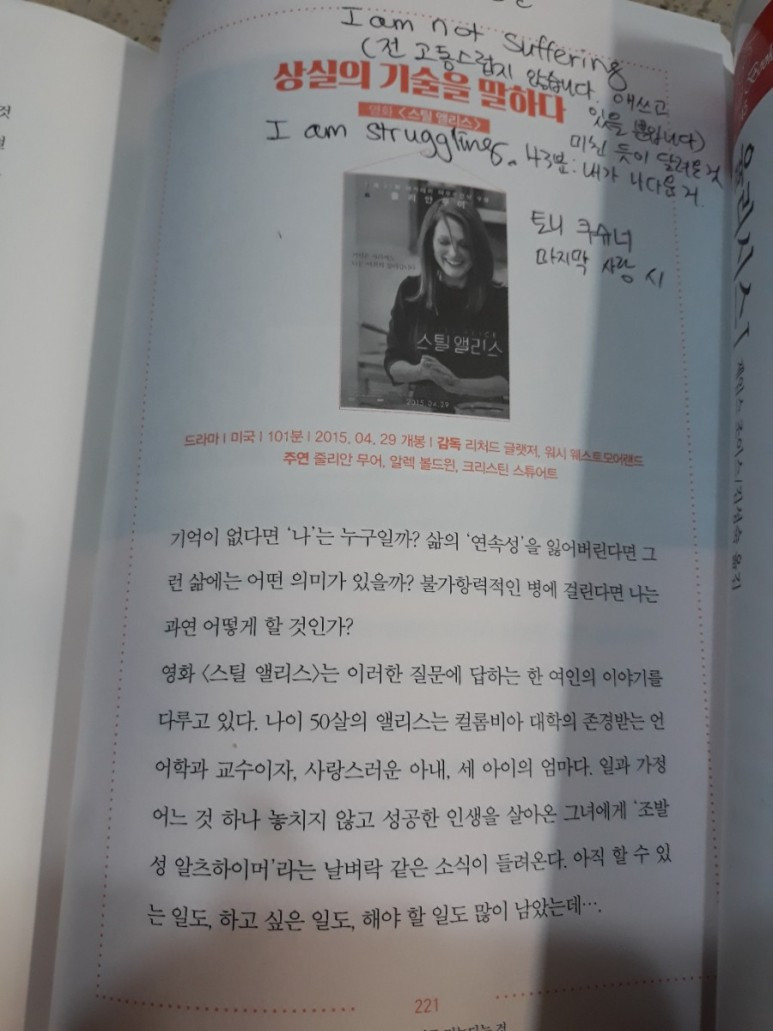 I am not suffering
(전 고통스럽지 않습니다. 애쓰고
있을 뿐입니다)
상실의 기술을 말하다
영화 <스틸 앨리스>
I am struggling.
미친 듯이 달려온 것
43분: 내가 나다운 거
토니 쿠슈너
마지막 사랑 시
줄리안 무어
스틸 앨리스
2015.04.29
드라마 | 미국 | 101분 | 2015. 04. 29 개봉 | 감독 리처드 글랫저, 워시 웨스트모어랜드
주연 줄리안 무어, 알렉 볼드윈, 크리스틴 스튜어트
기억이 없다면 '나'는 누구일까? 삶의 '연속성'을 잃어버린다면 그
런 삶에는 어떤 의미가 있을까? 불가항력적인 병에 걸린다면 나는
과연 어떻게 할 것인가?
영화 <스틸 앨리스>는 이러한 질문에 답하는 한 여인의 이야기를
다루고 있다. 나이 50살의 앨리스는 컬롬비아 대학의 존경받는 언
어학과 교수이자, 사랑스러운 아내, 세 아이의 엄마다. 일과 가정
어느 것 하나 놓치지 않고 성공한 인생을 살아온 그녀에게 '조발
성 알츠하이머'라는 날벼락 같은 소식이 들려온다. 아직 할 수 있
는 일도, 하고 싶은 일도, 해야 할 일도 많이 남았는데….
221
것
율리시스 I
제임스 조이스/진선주 옮김